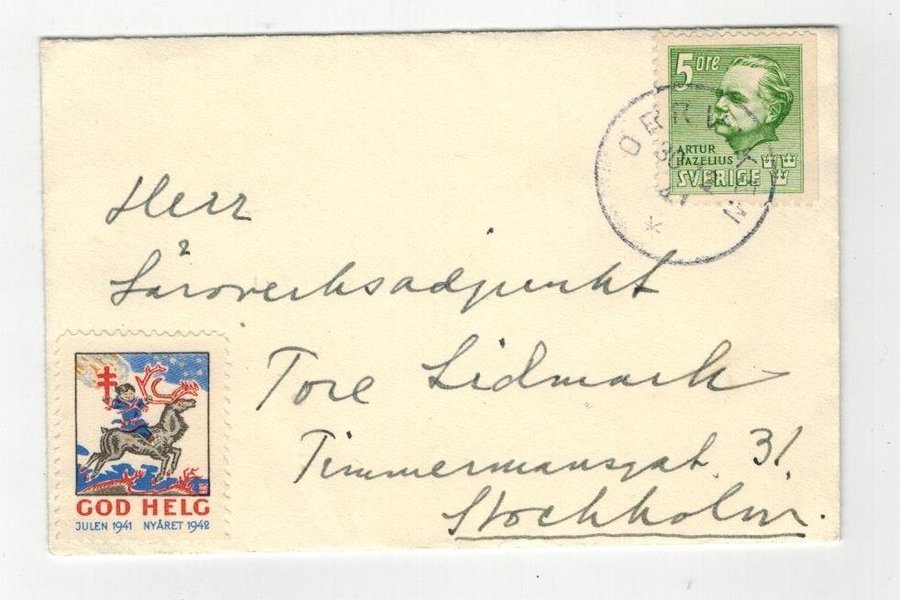 5 öre
ARTUR
HAZELIUS
SVERIGE
Herr
Läroverksadjunkt
Tore Lidmark
Timmermansgat. 31
Stockholm.
GOD HELG
JULEN 1941 NYÅRET 1942